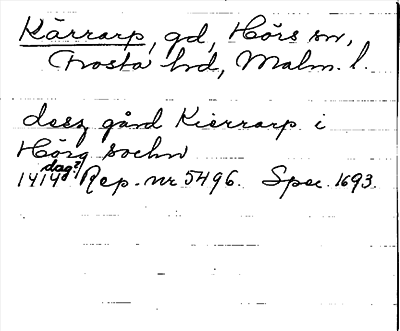 Kärrarp, gd, Hörs sn,
Frosta hd, Malm. l.
deez gård Kierrarp i
Hörg sochn
1414 dag? Rep. nr 5496. Spec. 1693.